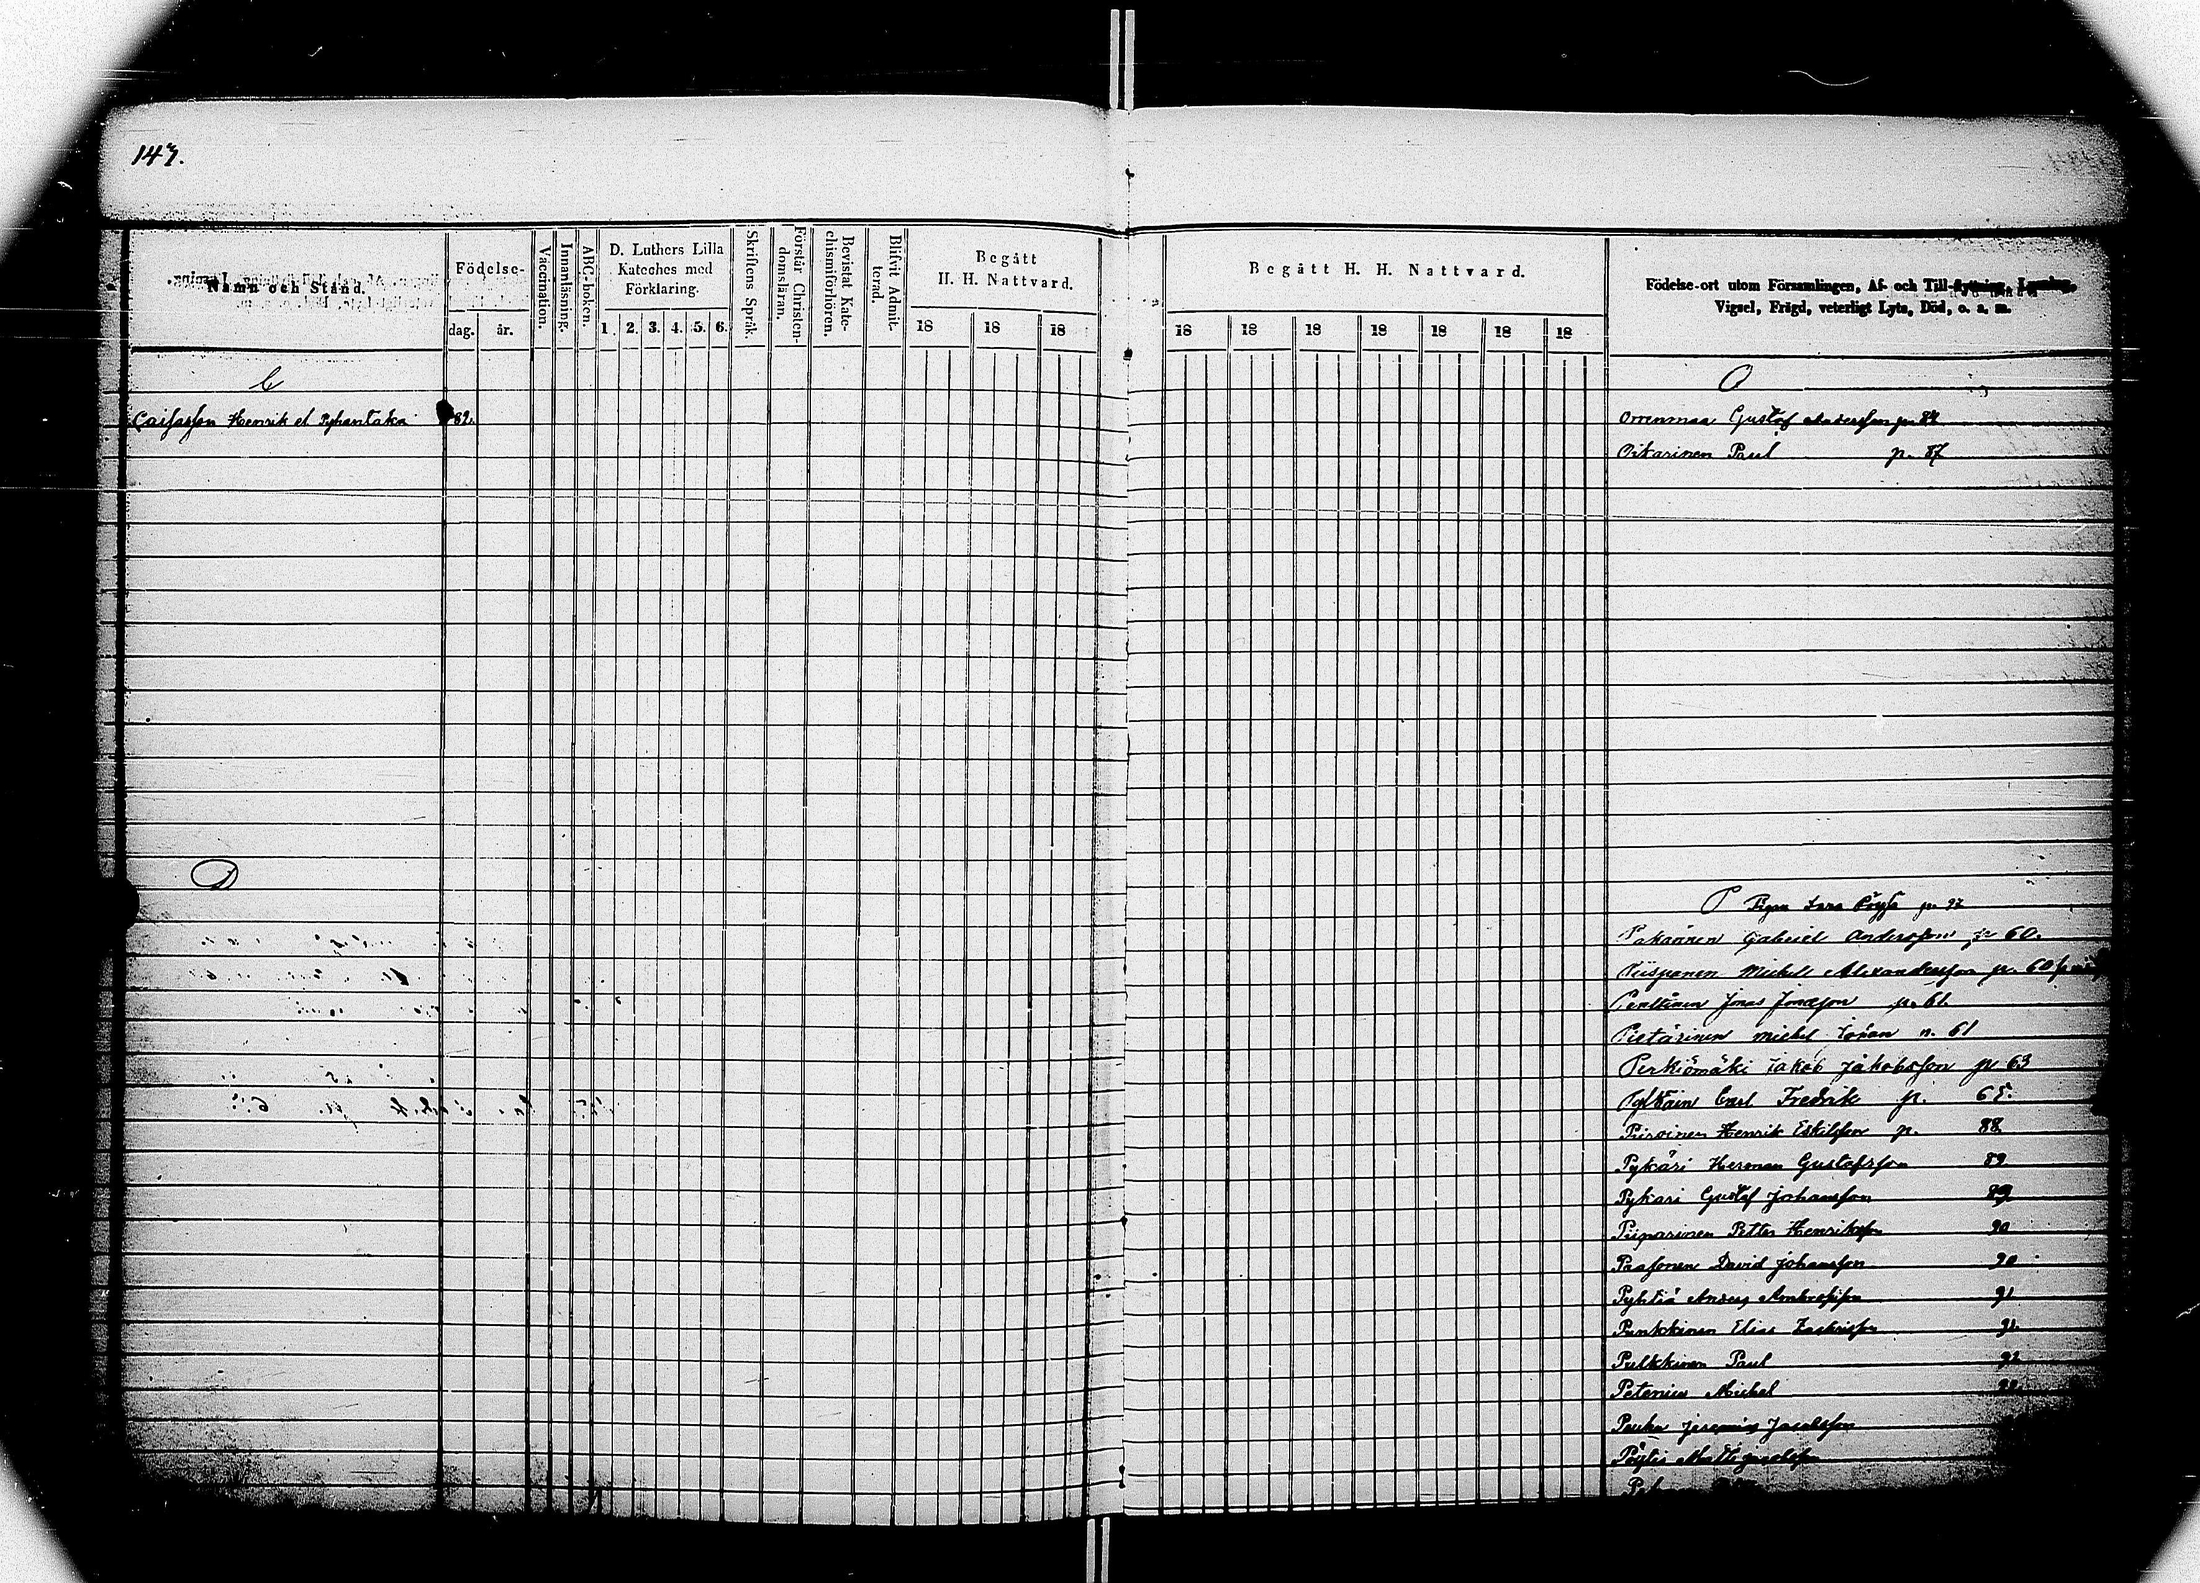 147.
Namn och Stånd.
Födelse-
dag. år.
Vaccination.
Innanläsning.
ABC-boken.
D. Luthers Lilla
Kateches med
Förklaring.
1. 2. 3. 4. 5. 6.
Skriftens Språk.
Förstår Christen-
domsläran.
Bevistat Kate-
chismiförhören.
Blifvit Admit-
terad.
Begått
H. H. Nattvard.
18 18 18
C
Henrik 82.
D
Begått H. H. Nattvard.
18 18 18 18 18 18 18
Födelse-ort utom Församlingen, Af- och Till-flyttning, Lysning,
Vigsel, Frägd, veterligt Lyte, Död, o. a. m.
O
Orrenmaa Gustaf Andersson p. 84
Oikarinen Paul p. 87
P
Pakarinen Gabriel Andersson p. 60.
Piispanen Mickell Alexandersson p. 60
Penttinen Jonas Jonasson p. 61.
Pietärinen Michel Johan p. 61
Perkiömäki Jakob Jakobsson p. 63
Carl Fredrik p. 65.
Piiroinen Henrik Eskilsson p. 88
Pykäri Herman Gustafsson 89.
Pykari Gustaf Johansson 89
Piiparinen Petter Henriksson 90
Paasonen David Johansson 90
Pyhtiä Anders 91
Elias 91.
Pulkkinen Paul 92
Petenius Michel
Jeremias Jacobsson